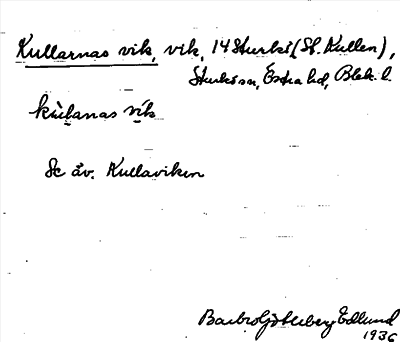 Kullarnas vik, vik, 14 Sturkö (St. Kullen),
Sturkö sn, Östra hd, Blek. l.
kùlanas vík
Se äv. Kullaviken
Barbro Götlberg Edlund
1936